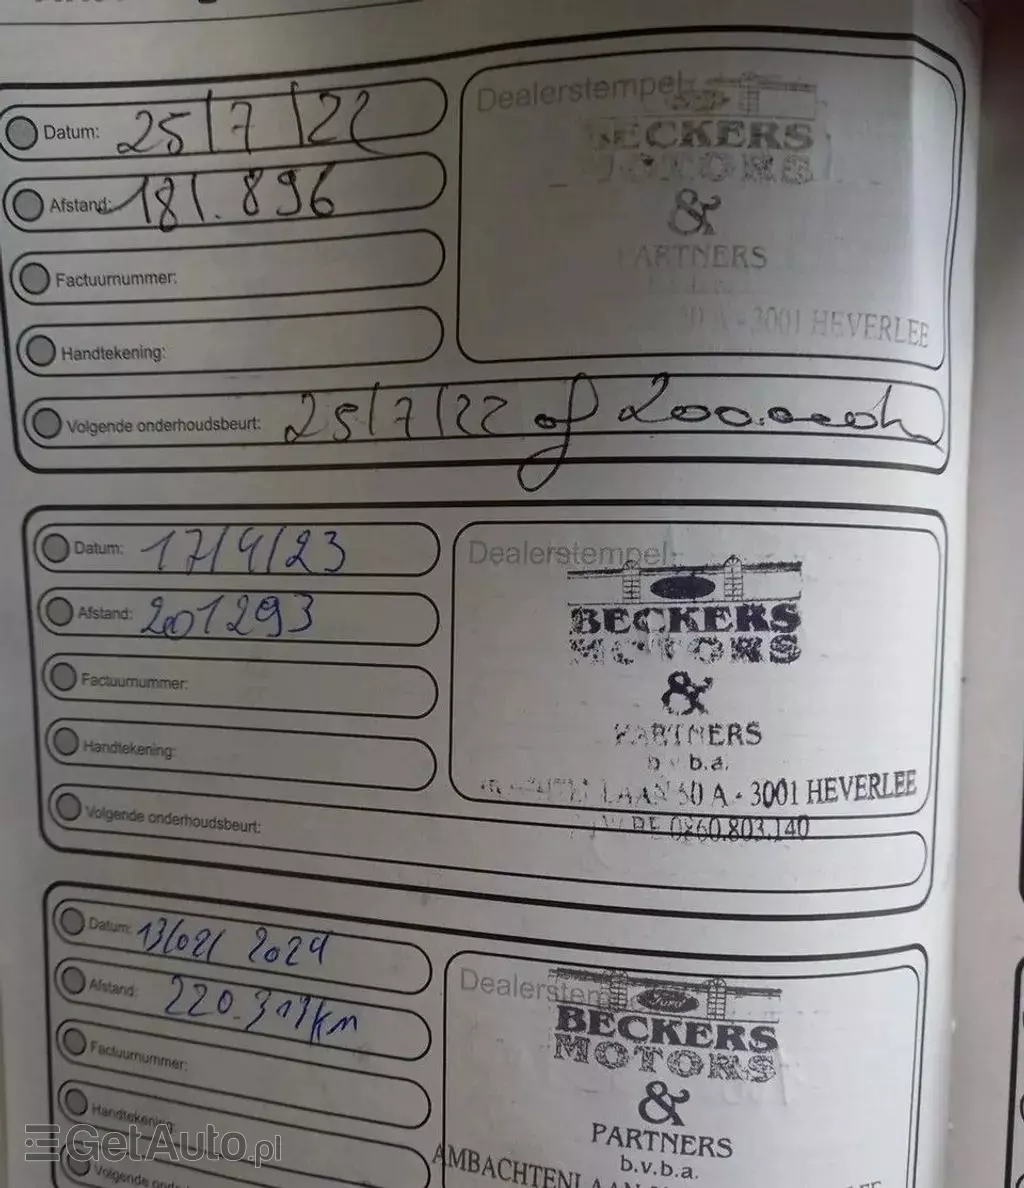 Datum: 25/7/22
Afstand: 181.896
Factuurnummer:
Handtekening:
Volgende onderhoudsbeurt: 25/7/22 of 200.000
Dealerstempel:
BECKERS
MOTORS
&
PARTNERS
A - 3001 HEVERLEE
Datum: 17/4/23
Afstand: 201293
Factuurnummer:
Handtekening:
Volgende onderhoudsbeurt:
Dealerstempel:
BECKERS
MOTORS
&
PARTNERS
b.v.b.a.
LAAN 50 A - 3001 HEVERLEE
BE 0860.803.140
Datum: 13/02/2024
Afstand: 220.319km
Factuurnummer:
Handtekening:
Volgende
Dealerstem
Ford
BECKERS
MOTORS
&
PARTNERS
b.v.b.a.
AMBACHTENLAAN
GetAuto.pl